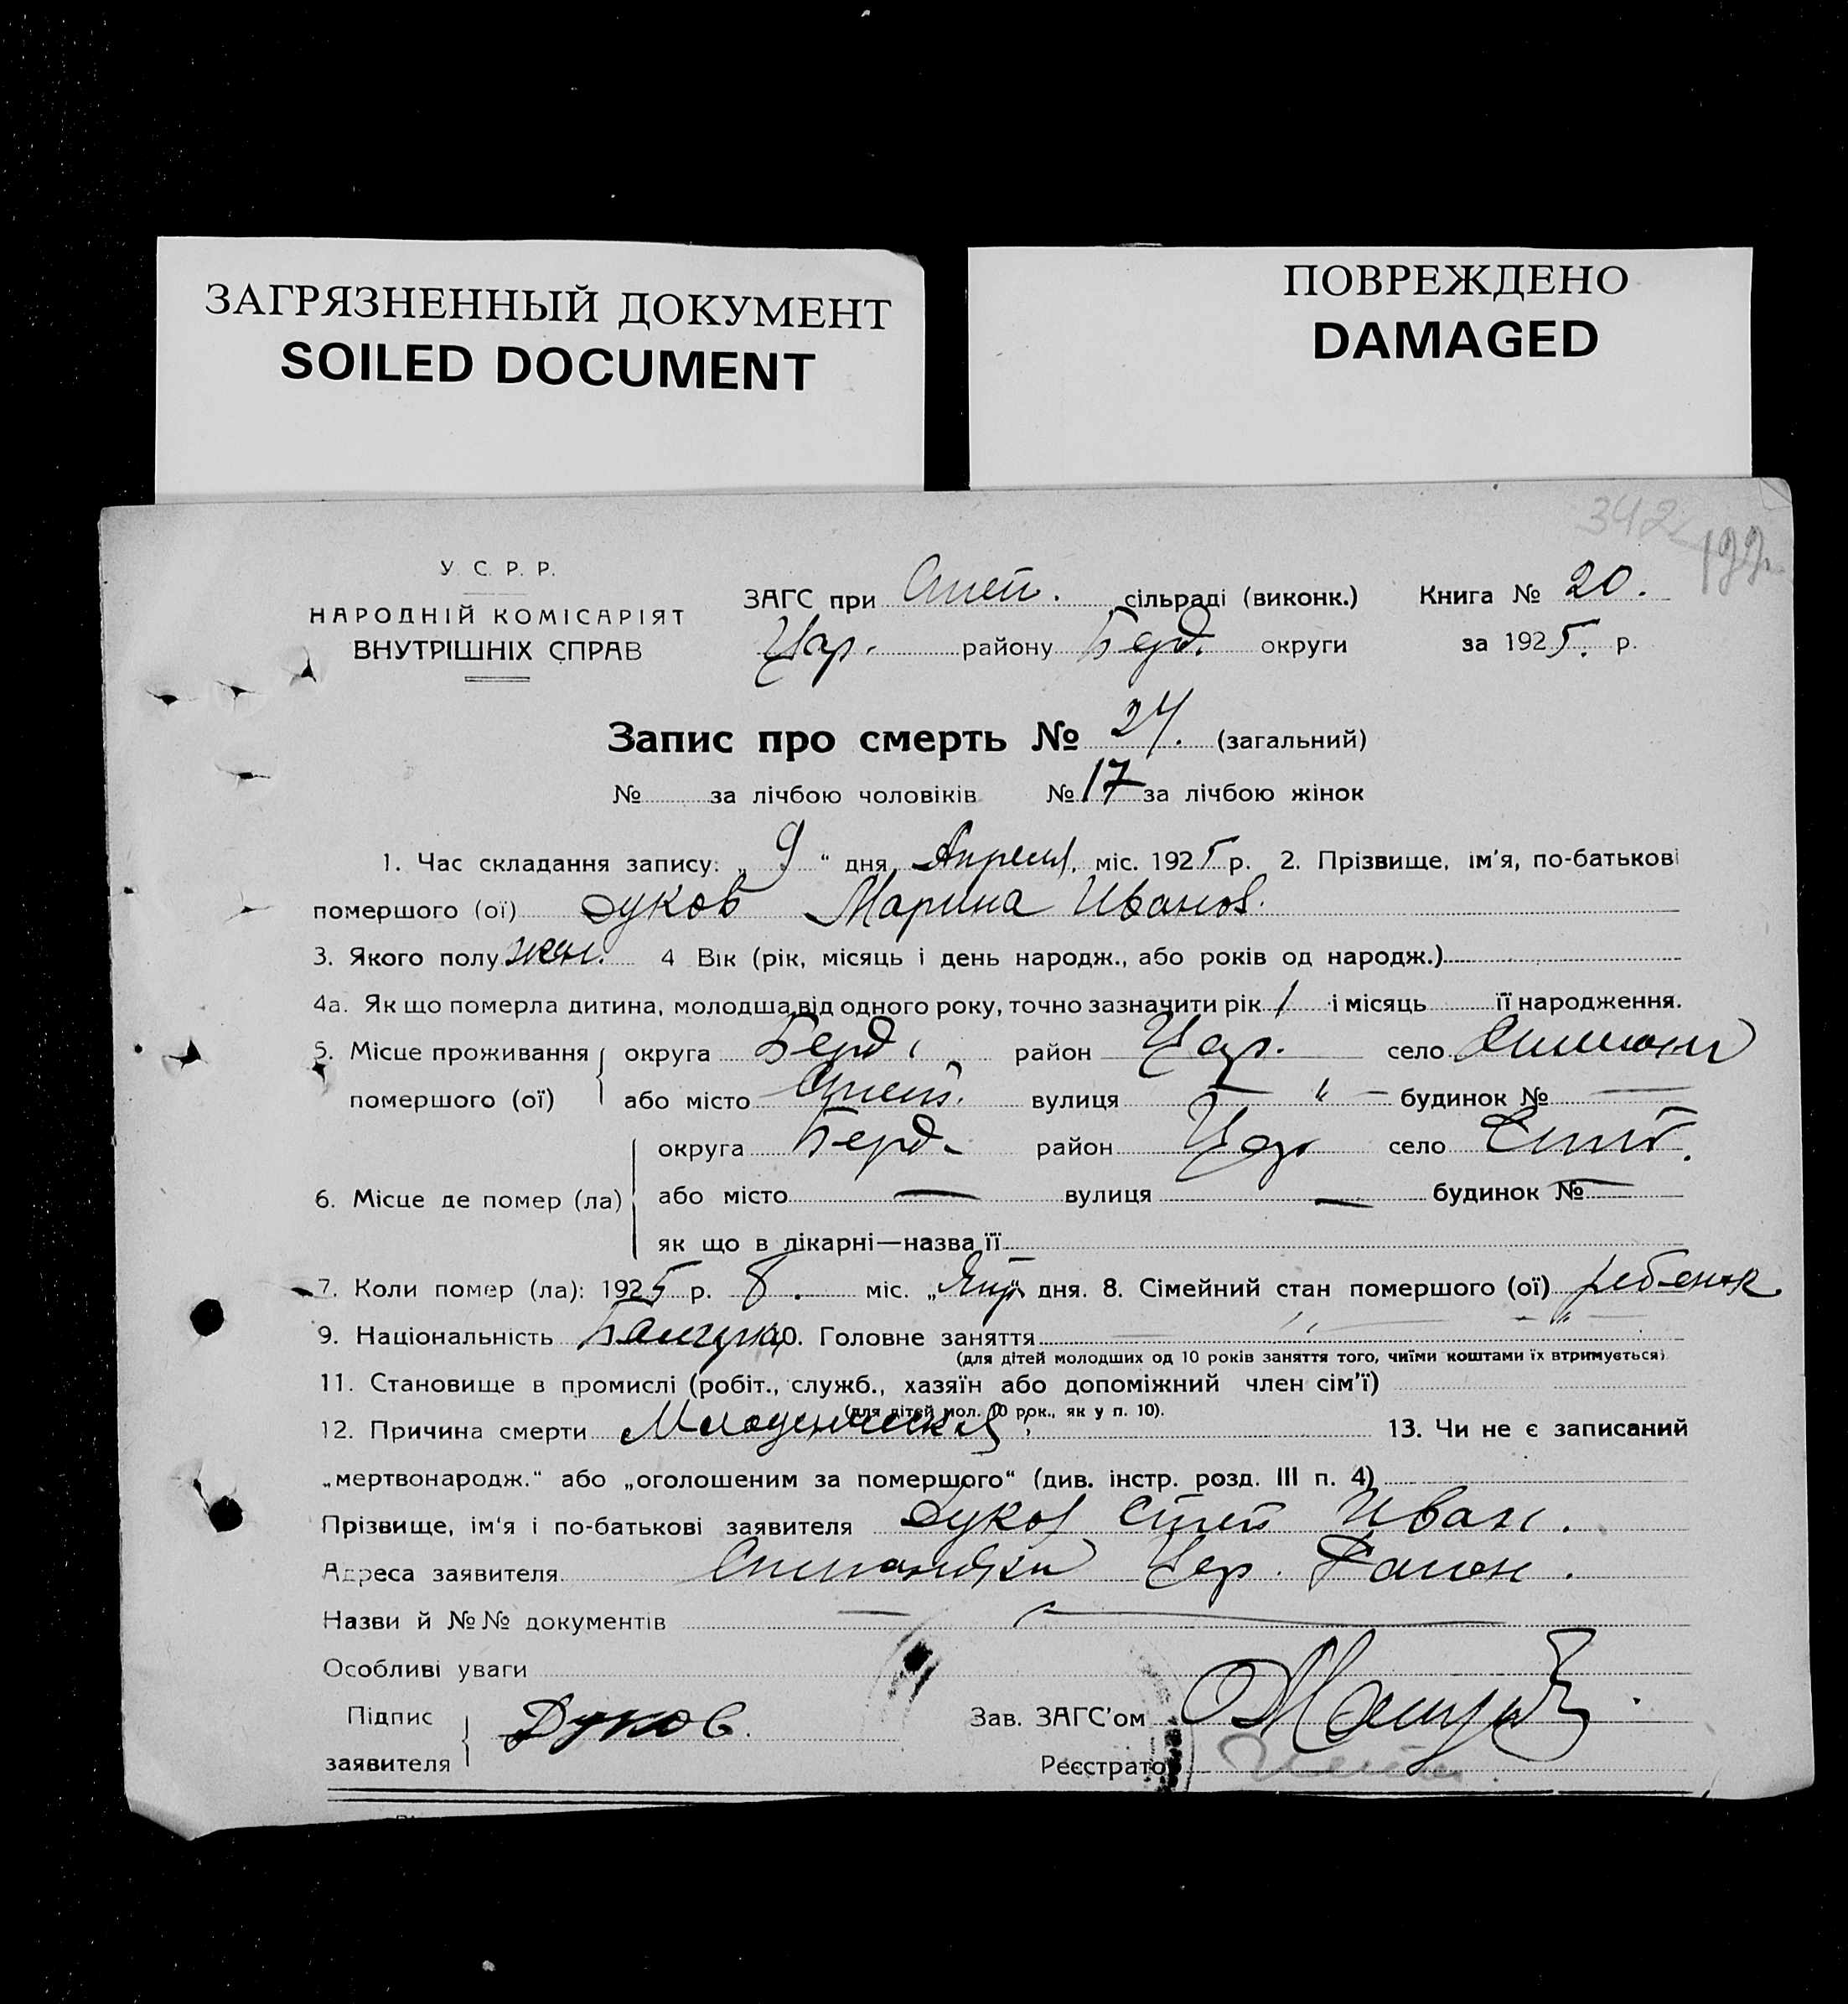 ЗАГРЯЗНЕННЫЙ ДОКУМЕНТ
SOILED DOCUMENT
ПОВРЕЖДЕНО
DAMAGED
342
У. С. Р. Р.
НАРОДНІЙ КОМІСАРІЯТ
ВНУТРІШНІХ СПРАВ
ЗАГС при Степ. сільраді (виконк.) Книга № 20.
Цар. району Берд. округи за 1925. р.
Запис про смерть № 24. (загальний)
№ за лічбою чоловіків № 17 за лічбою жінок
1. Час складання запису: „ 9 “ дня Апреля міс. 1925 р. 2. Прізвище, ім'я, по-батькові
помершого (ої) Дуков Марина Иванов.
3. Якого полу жен. 4 Вік (рік, місяць і день народж., або років од народж.)
4а. Як що померла дитина, молодша від одного року, точно зазначити рік 1 і місяць її народження.
5. Місце проживання округа Берд. район Цар. село
помершого (ої) або місто Степ. вулиця — " — будинок № —
округа Берд. район Цар. село Степ.
6. Місце де помер (ла) або місто — вулиця — будинок № —
як що в лікарні—назва її
7. Коли помер (ла): 1925 р. 8. міс. „ Апр. дня. 8. Сімейний стан помершого (ої) ребенок
9. Національність 10. Головне заняття — " — " —
(для дітей молодших од 10 років заняття того, чиїми коштами їх втримується)
11. Становище в промислі (робіт., служб., хазяїн або допоміжний член сім'ї)
(для дітей мол. 10 рок., як у п. 10).
12. Причина смерти Младенческая 13. Чи не є записаний
„мертвонародж.“ або „оголошеним за помершого“ (див. інстр. розд. III п. 4)
Прізвище, ім'я і по-батькові заявителя Дуков Степ Иван.
Адреса заявителя Степановки Цар. Район.
Назви й №№ документів —
Особливі уваги
Підпис
заявителя Дуков.
Зав. ЗАГС'ом
Реєстратор